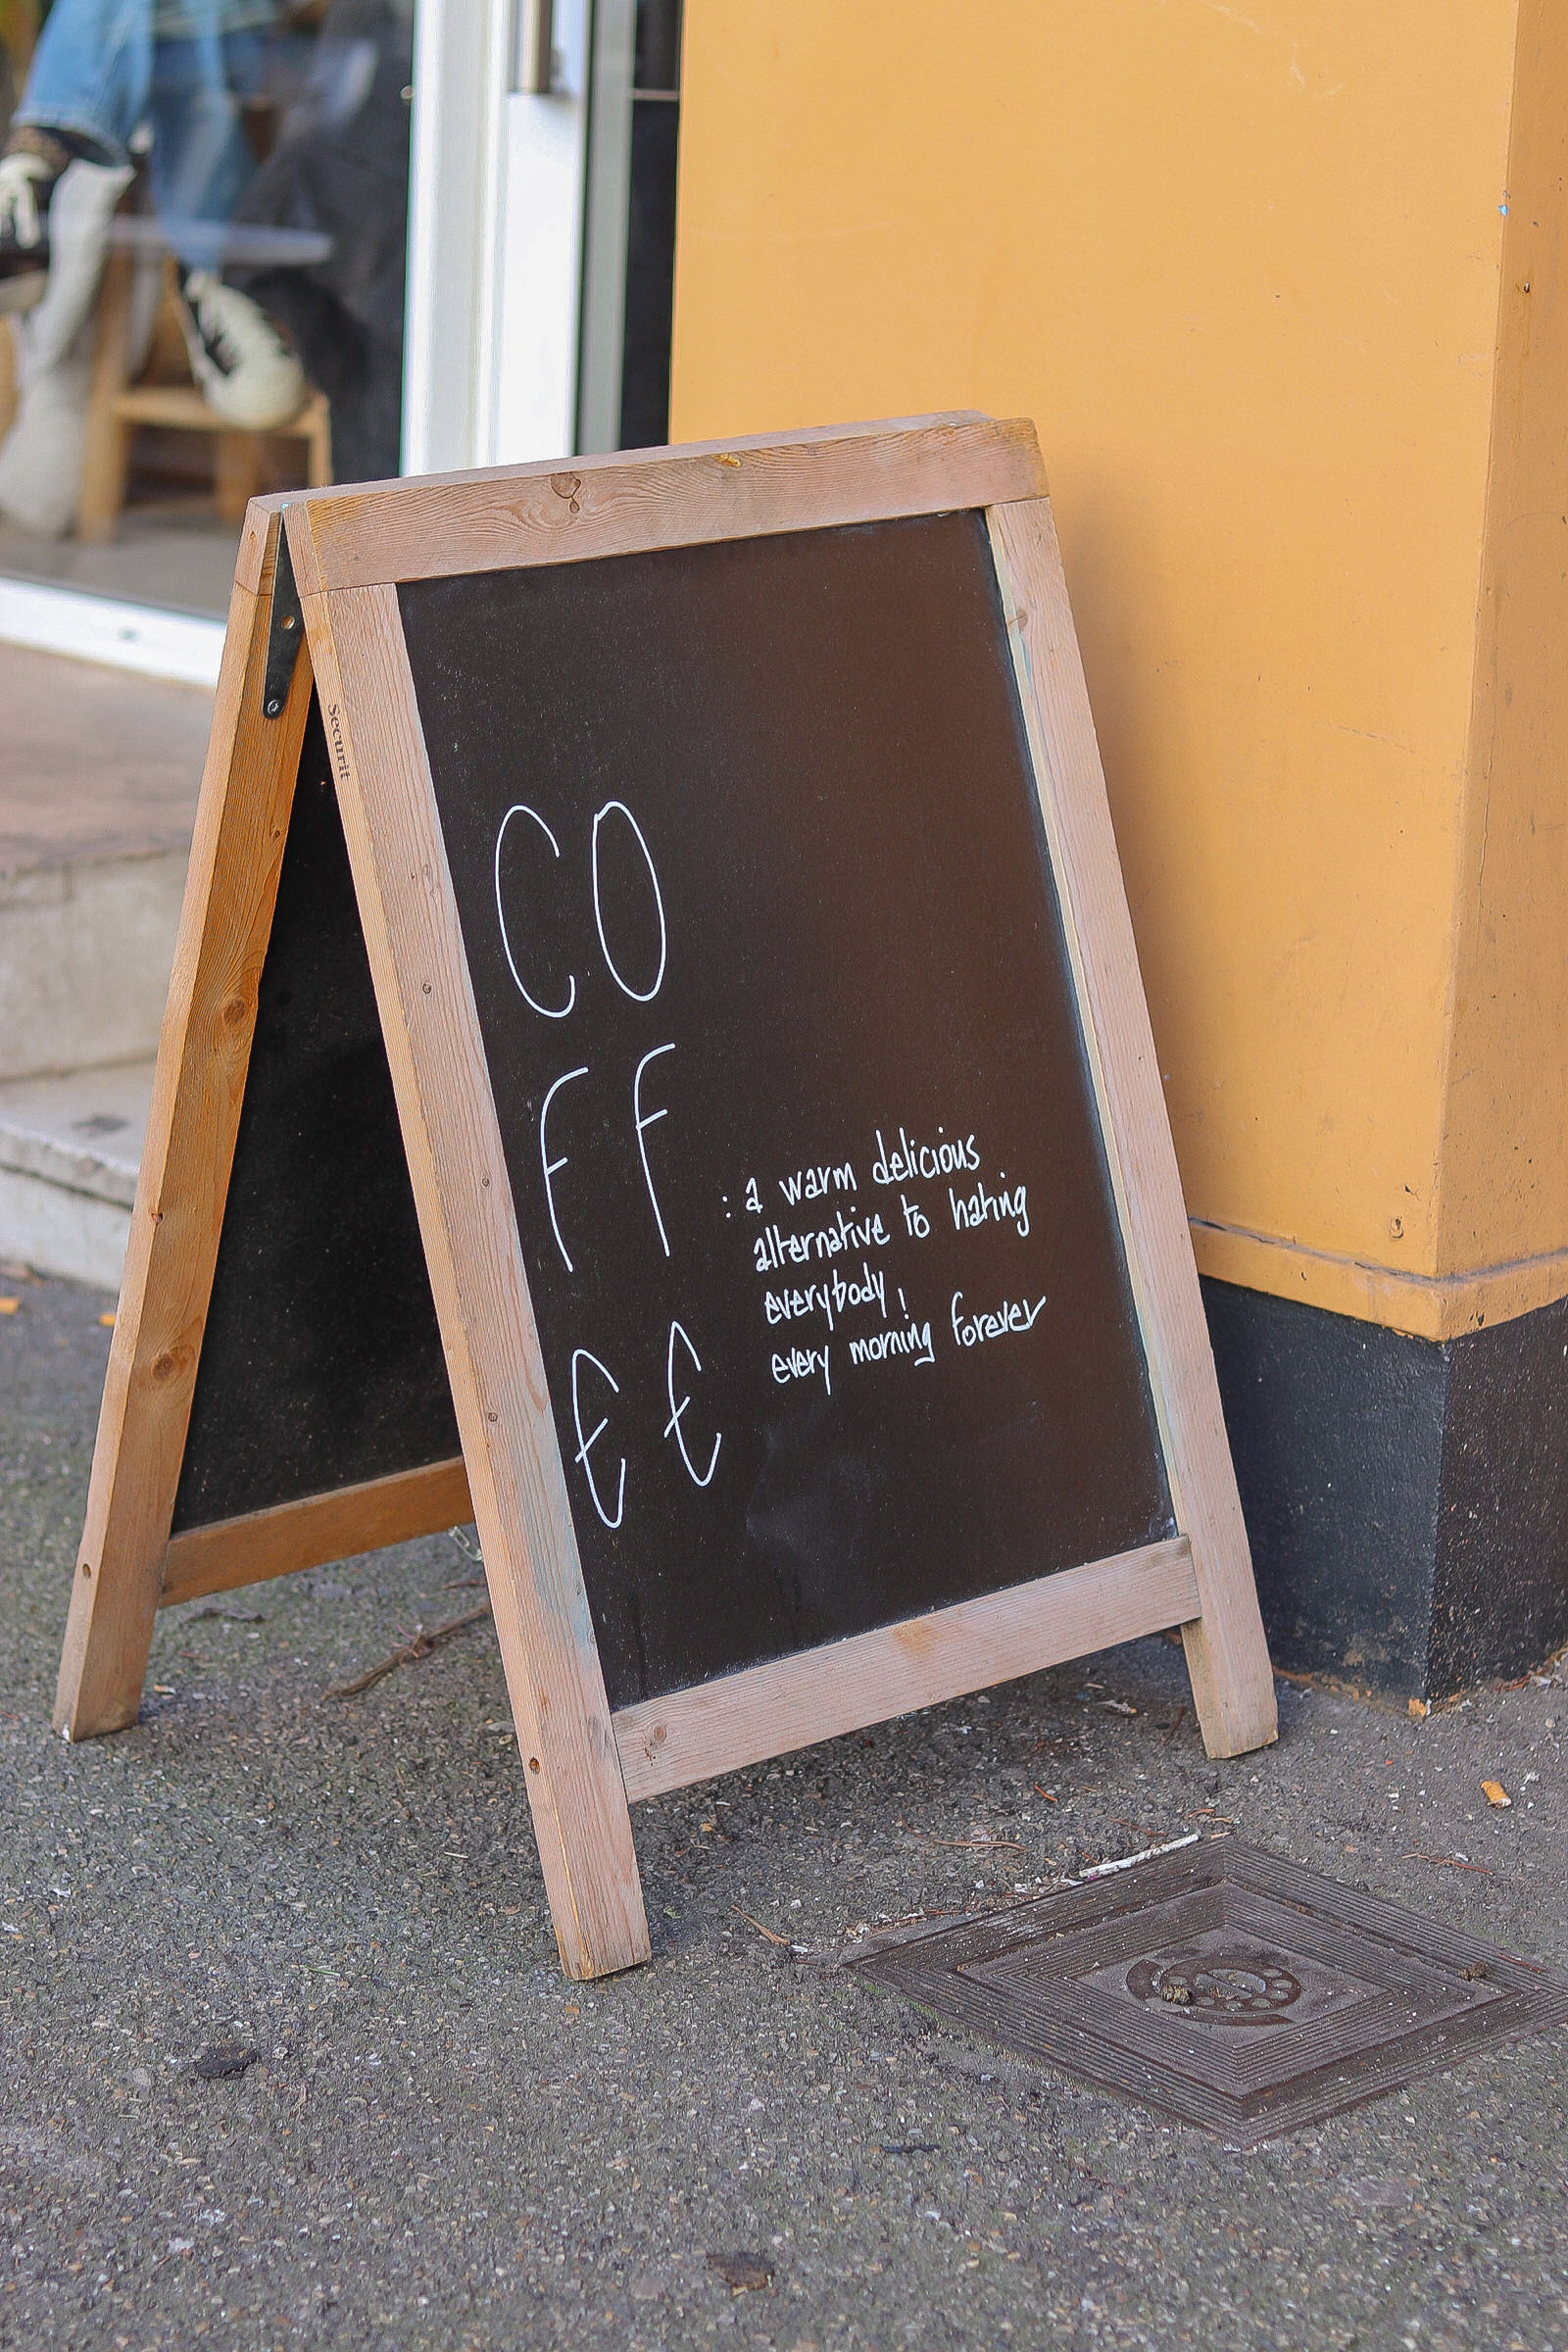 Securit
CO
FF
EE
: a warm delicious
alternative to hating
everybody,
every morning forever